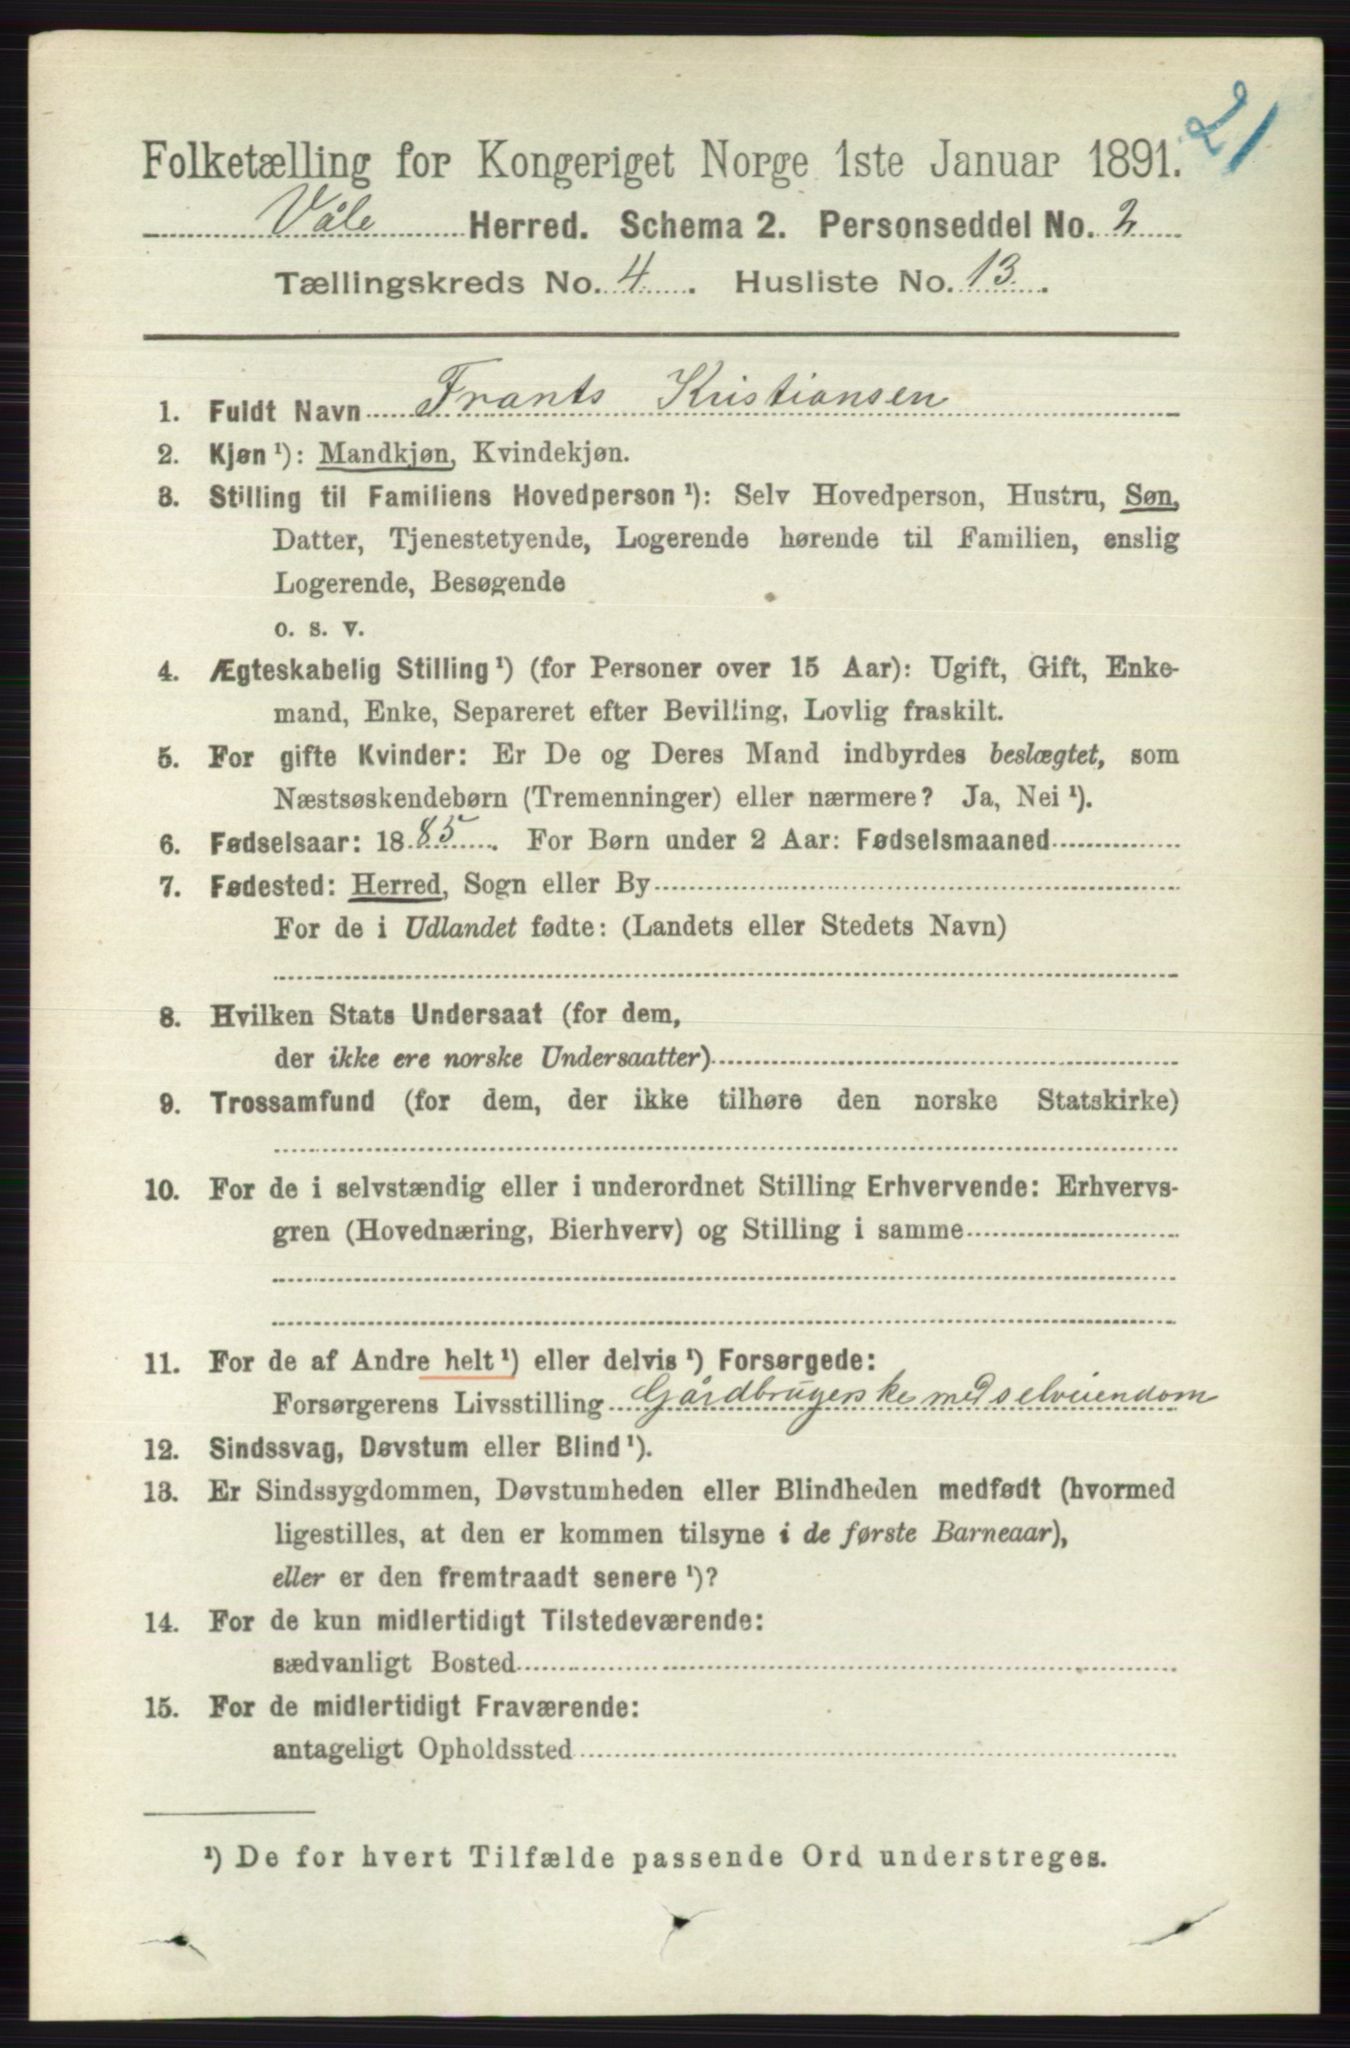 21
Folketælling for Kongeriget Norge 1ste Januar 1891.
Våle Herred. Schema 2. Personseddel No. 2
Tællingskreds No. 4. Husliste No. 13.
1. Fuldt Navn Frants Kristiansen
2. Kjøn ¹): Mandkjøn, Kvindekjøn.
3. Stilling til Familiens Hovedperson ¹): Selv Hovedperson, Hustru, Søn,
Datter, Tjenestetyende, Logerende hørende til Familien, enslig
Logerende, Besøgende
o. s. v.
4. Ægteskabelig Stilling ¹) (for Personer over 15 Aar): Ugift, Gift, Enke-
mand, Enke, Separeret efter Bevilling, Lovlig fraskilt.
5. For gifte Kvinder: Er De og Deres Mand indbyrdes beslægtet, som
Næstsøskendebørn (Tremenninger) eller nærmere? Ja, Nei ¹).
6. Fødselsaar: 1885. For Børn under 2 Aar: Fødselsmaaned
7. Fødested: Herred, Sogn eller By
For de i Udlandet fødte: (Landets eller Stedets Navn)
8. Hvilken Stats Undersaat (for dem,
der ikke ere norske Undersaatter)
9. Trossamfund (for dem, der ikke tilhøre den norske Statskirke)
10. For de i selvstændig eller i underordnet Stilling Erhvervende: Erhvervs-
gren (Hovednæring, Bierhverv) og Stilling i samme
11. For de af Andre helt ¹) eller delvis ¹) Forsørgede:
Forsørgerens Livsstilling Gårdbrugerske med selveiendom
12. Sindssvag, Døvstum eller Blind ¹).
13. Er Sindssygdommen, Døvstumheden eller Blindheden medfødt (hvormed
ligestilles, at den er kommen tilsyne i de første Barneaar),
eller er den fremtraadt senere ¹)?
14. For de kun midlertidigt Tilstedeværende:
sædvanligt Bosted
15. For de midlertidigt Fraværende:
antageligt Opholdssted
¹) De for hvert Tilfælde passende Ord understreges.